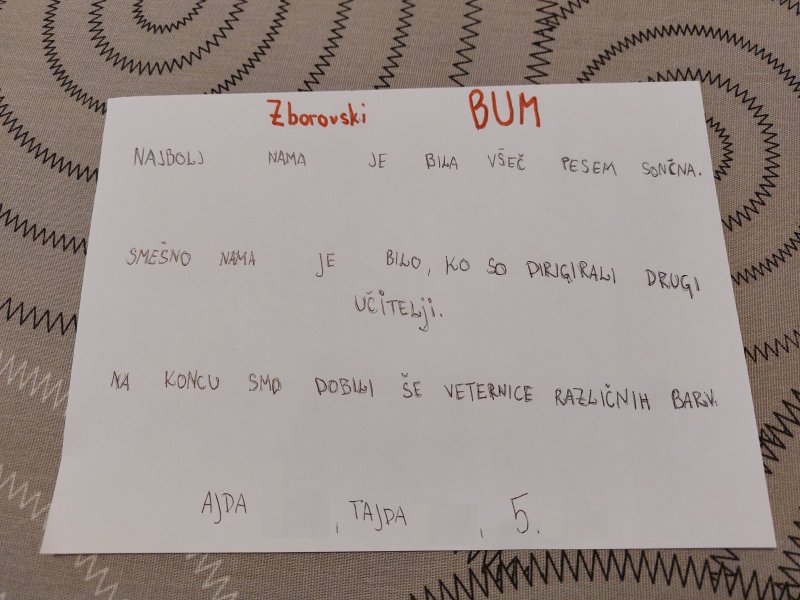 Zborovski BUM
NAJBOLJ NAMA JE BILA VŠEČ PESEM SONČNA.
SMEŠNO NAMA JE BILO, KO SO DIRIGIRALI DRUGI
UČITELJI.
NA KONCU SMO DOBILI ŠE VETERNICE RAZLIČNIH BARV.
AJDA , TAJDA , 5.